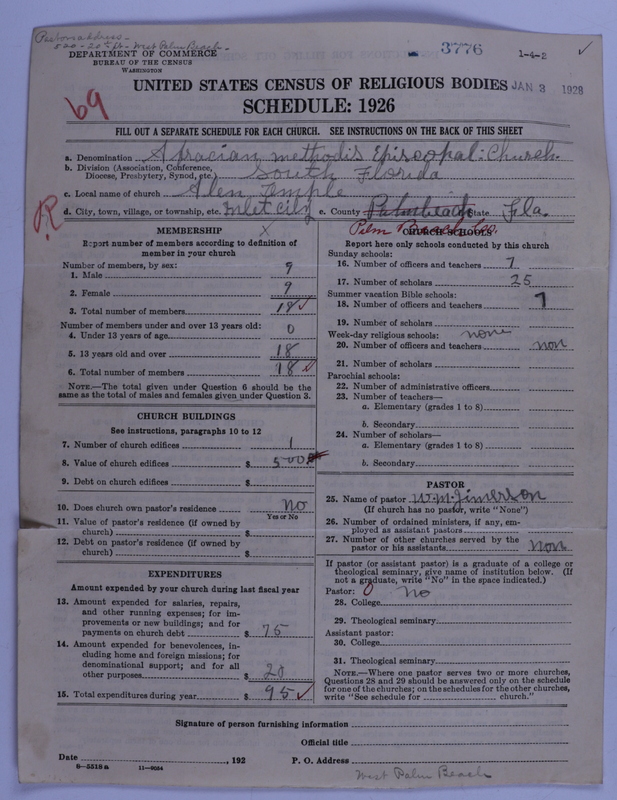 Pastors address -
820 - 20th st - West Palm Beach -
3776
1-4-2 ✓
DEPARTMENT OF COMMERCE
BUREAU OF THE CENSUS
WASHINGTON
UNITED STATES CENSUS OF RELIGIOUS BODIES
JAN 3 1928
SCHEDULE: 1926
69
FILL OUT A SEPARATE SCHEDULE FOR EACH CHURCH. SEE INSTRUCTIONS ON THE BACK OF THIS SHEET
a. Denomination Afracian methodis Episcopal Church.
b. Division (Association, Conference, Diocese, Presbytery, Synod, etc.) South Florida
c. Local name of church Alen Temple
R
d. City, town, village, or township, etc. Inlet city e. County Palmbeach State Fla.
Palm Beach Co.
MEMBERSHIP
X
Report number of members according to definition of
member in your church
Number of members, by sex:
1. Male 9
2. Female 9
3. Total number of members 18 ✓
Number of members under and over 13 years old:
4. Under 13 years of age 0
5. 13 years old and over 18
6. Total number of members 18 ✓
NOTE.—The total given under Question 6 should be the
same as the total of males and females given under Question 3.
CHURCH BUILDINGS
See instructions, paragraphs 10 to 12
7. Number of church edifices 1
8. Value of church edifices $ 500
9. Debt on church edifices $
10. Does church own pastor's residence No
Yes or No
11. Value of pastor's residence (if owned by
church) $
12. Debt on pastor's residence (if owned by
church) $
EXPENDITURES
Amount expended by your church during last fiscal year
13. Amount expended for salaries, repairs,
and other running expenses; for im-
provements or new buildings; and for
payments on church debt $ 75
14. Amount expended for benevolences, in-
cluding home and foreign missions; for
denominational support; and for all
other purposes $ 20
15. Total expenditures during year $ 95 ✓
CHURCH SCHOOLS
Report here only schools conducted by this church
Sunday schools:
16. Number of officers and teachers 7
17. Number of scholars 25
Summer vacation Bible schools:
18. Number of officers and teachers 7
19. Number of scholars
Week-day religious schools: none
20. Number of officers and teachers non
21. Number of scholars
Parochial schools:
22. Number of administrative officers
23. Number of teachers—
a. Elementary (grades 1 to 8)
b. Secondary
24. Number of scholars—
a. Elementary (grades 1 to 8)
b. Secondary
PASTOR
25. Name of pastor W. M. Jimerson
(If church has no pastor, write "None")
26. Number of ordained ministers, if any, em-
ployed as assistant pastors
27. Number of other churches served by the
pastor or his assistants non
If pastor (or assistant pastor) is a graduate of a college or
theological seminary, give name of institution below. (If
not a graduate, write "No" in the space indicated.)
Pastor: 0 No
28. College
29. Theological seminary
Assistant pastor:
30. College
31. Theological seminary
NOTE.—Where one pastor serves two or more churches,
Questions 28 and 29 should be answered only on the schedule
for one of the churches; on the schedules for the other churches,
write "See schedule for church."
Signature of person furnishing information
Official title
Date , 192 P. O. Address
6—5518a 11—9054
West Palm Beach